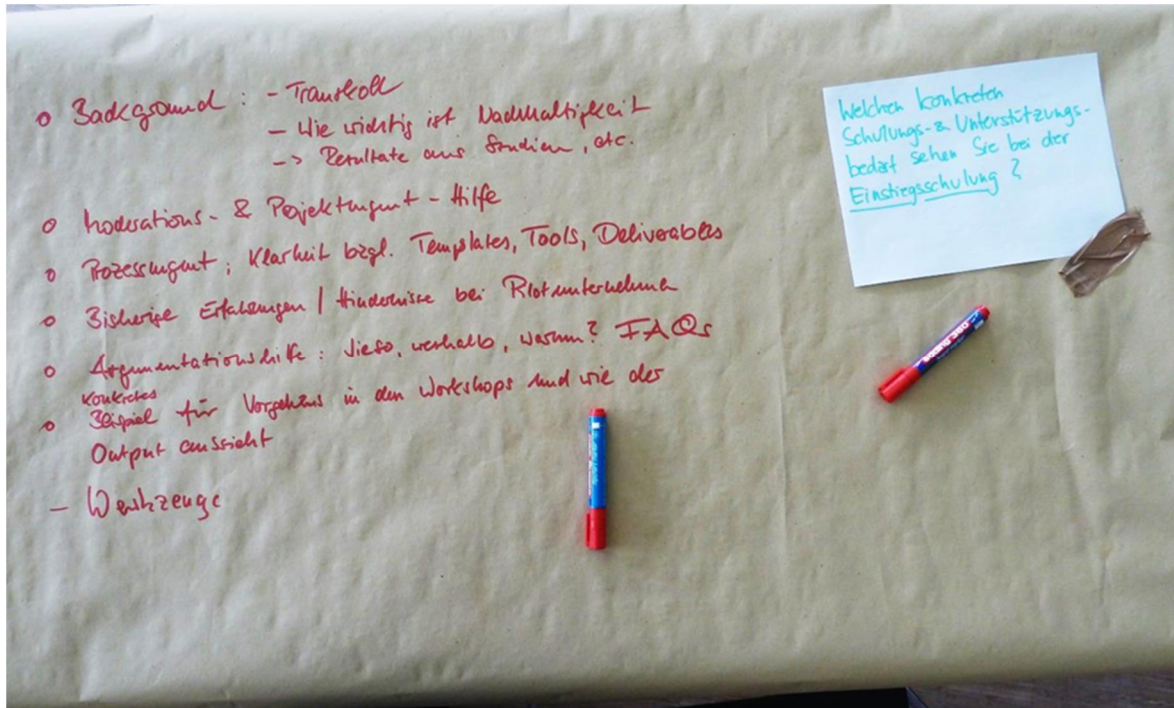 o Background : - Transkoll
- Wie wichtig ist Nachhaltigkeit
-> Resultate aus Studien, etc.
o Moderations- & Projektmgmt - Hilfe
o Prozessmgmt, Klarheit bzgl. Templates, Tools, Deliverables
o Bisherige Erfahrungen / Hindernisse bei Pilotunternehmen
o Argumentationshilfe : Wieso, weshalb, warum? FAQs
konkretes
o Beispiel für Vorgehens in den Workshops und wie der
Output aussieht
- Werkzeuge
Welchen konkreten
Schulungs- & Unterstützungs-
bedarf sehen Sie bei der
Einstiegsschulung ?